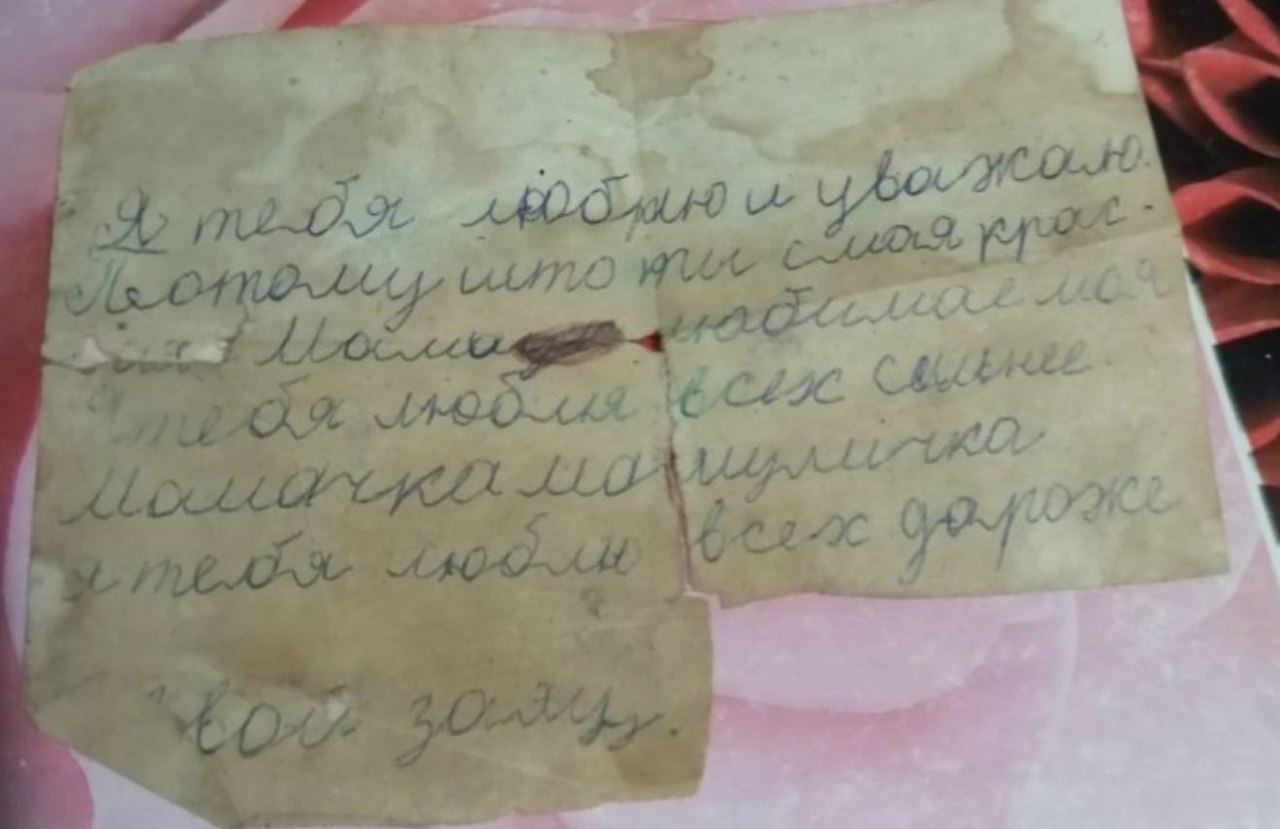 Я тебя люблю и уважаю.
Потому што ты смая крас-
Мама любимае моя
тебя люблю всех сильнее.
Мамачка мамуличка
я тебя люблю всех дароже
вой заяц.